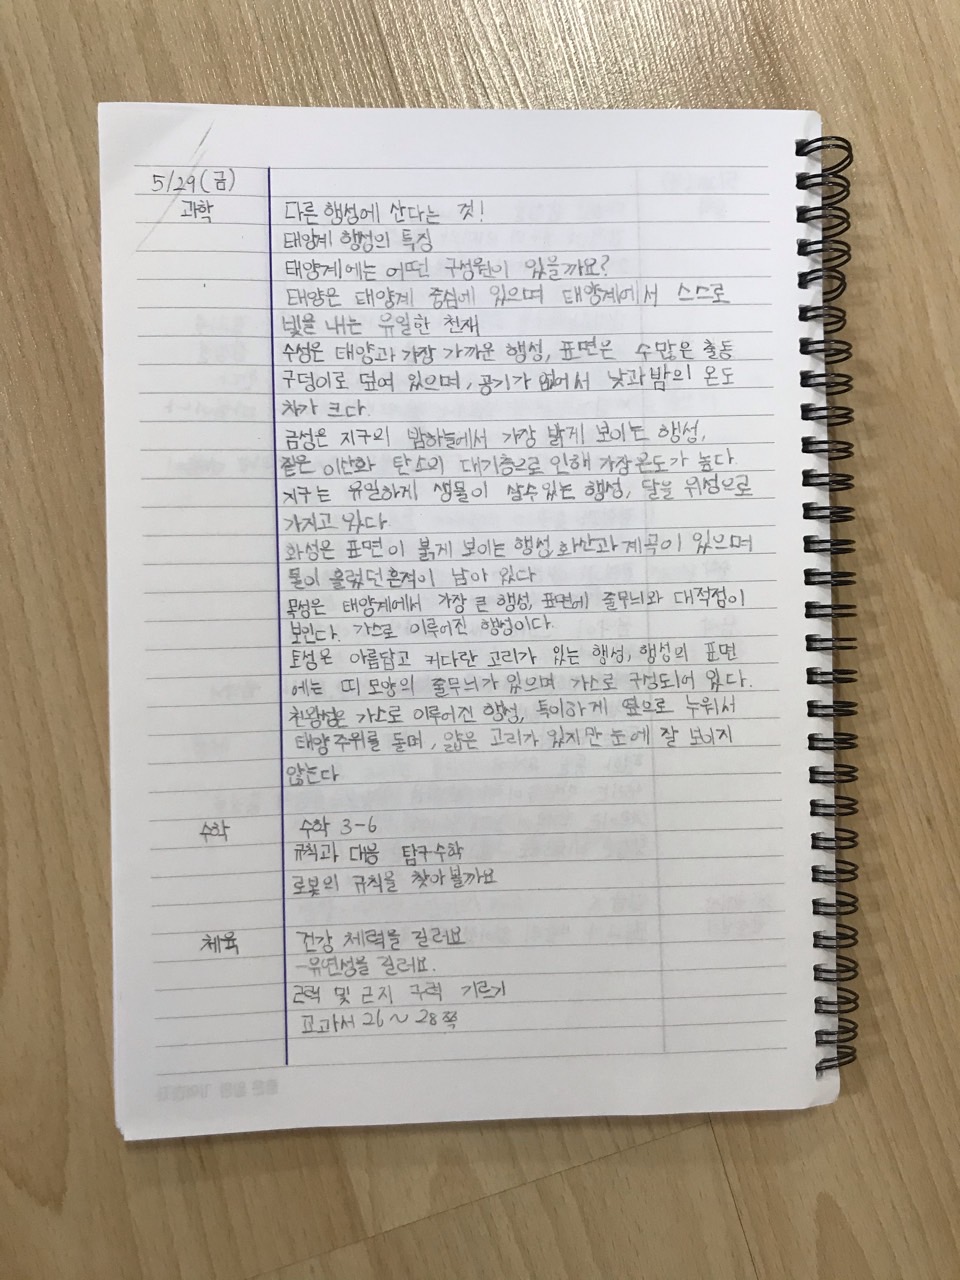 5/29(금)
과학
다른 행성에 산다는 것!
태양계 행성의 특징
태양계에는 어떤 구성원이 있을까요?
태양은 태양계 중심에 있으며 태양계에서 스스로
빛을 내는 유일한 천재
수성은 태양과 가장 가까운 행성, 표면은 수많은 충동
구덩이로 덮여 있으며, 공기가 없어서 낮과 밤의 온도
차가 크다.
금성은 지구의 밤하늘에서 가장 밝게 보이는 행성,
짙은 이산화 탄소의 대기층으로 인해 가장 온도가 높다.
지구는 유일하게 생물이 살수있는 행성, 달을 위성으로
가지고 있다
화성은 표면이 붉게 보이는 행성, 화산과 계곡이 있으며
물이 흘렀던 흔적이 남아 있다
목성은 태양계에서 가장 큰 행성, 표면에 줄무늬와 대적점이
보인다. 가스로 이루어진 행성이다.
토성은 아름답고 커다란 고리가 있는 행성, 행성의 표면
에는 띠 모양의 줄무늬가 있으며 가스로 구성되어 있다.
천왕성은 가스로 이루어진 행성, 특이하게 옆으로 누워서
태양 주위를 돌며, 얇은 고리가 있지만 눈에 잘 보이지
않는다
수학
수학 3-6
규칙과 대응 탐구수학
로봇의 규칙을 찾아볼까요
체육
건강 체력을 길러요
-유연성을 길러요.
근력 및 근지 구력 기르기
교과서 26~28쪽